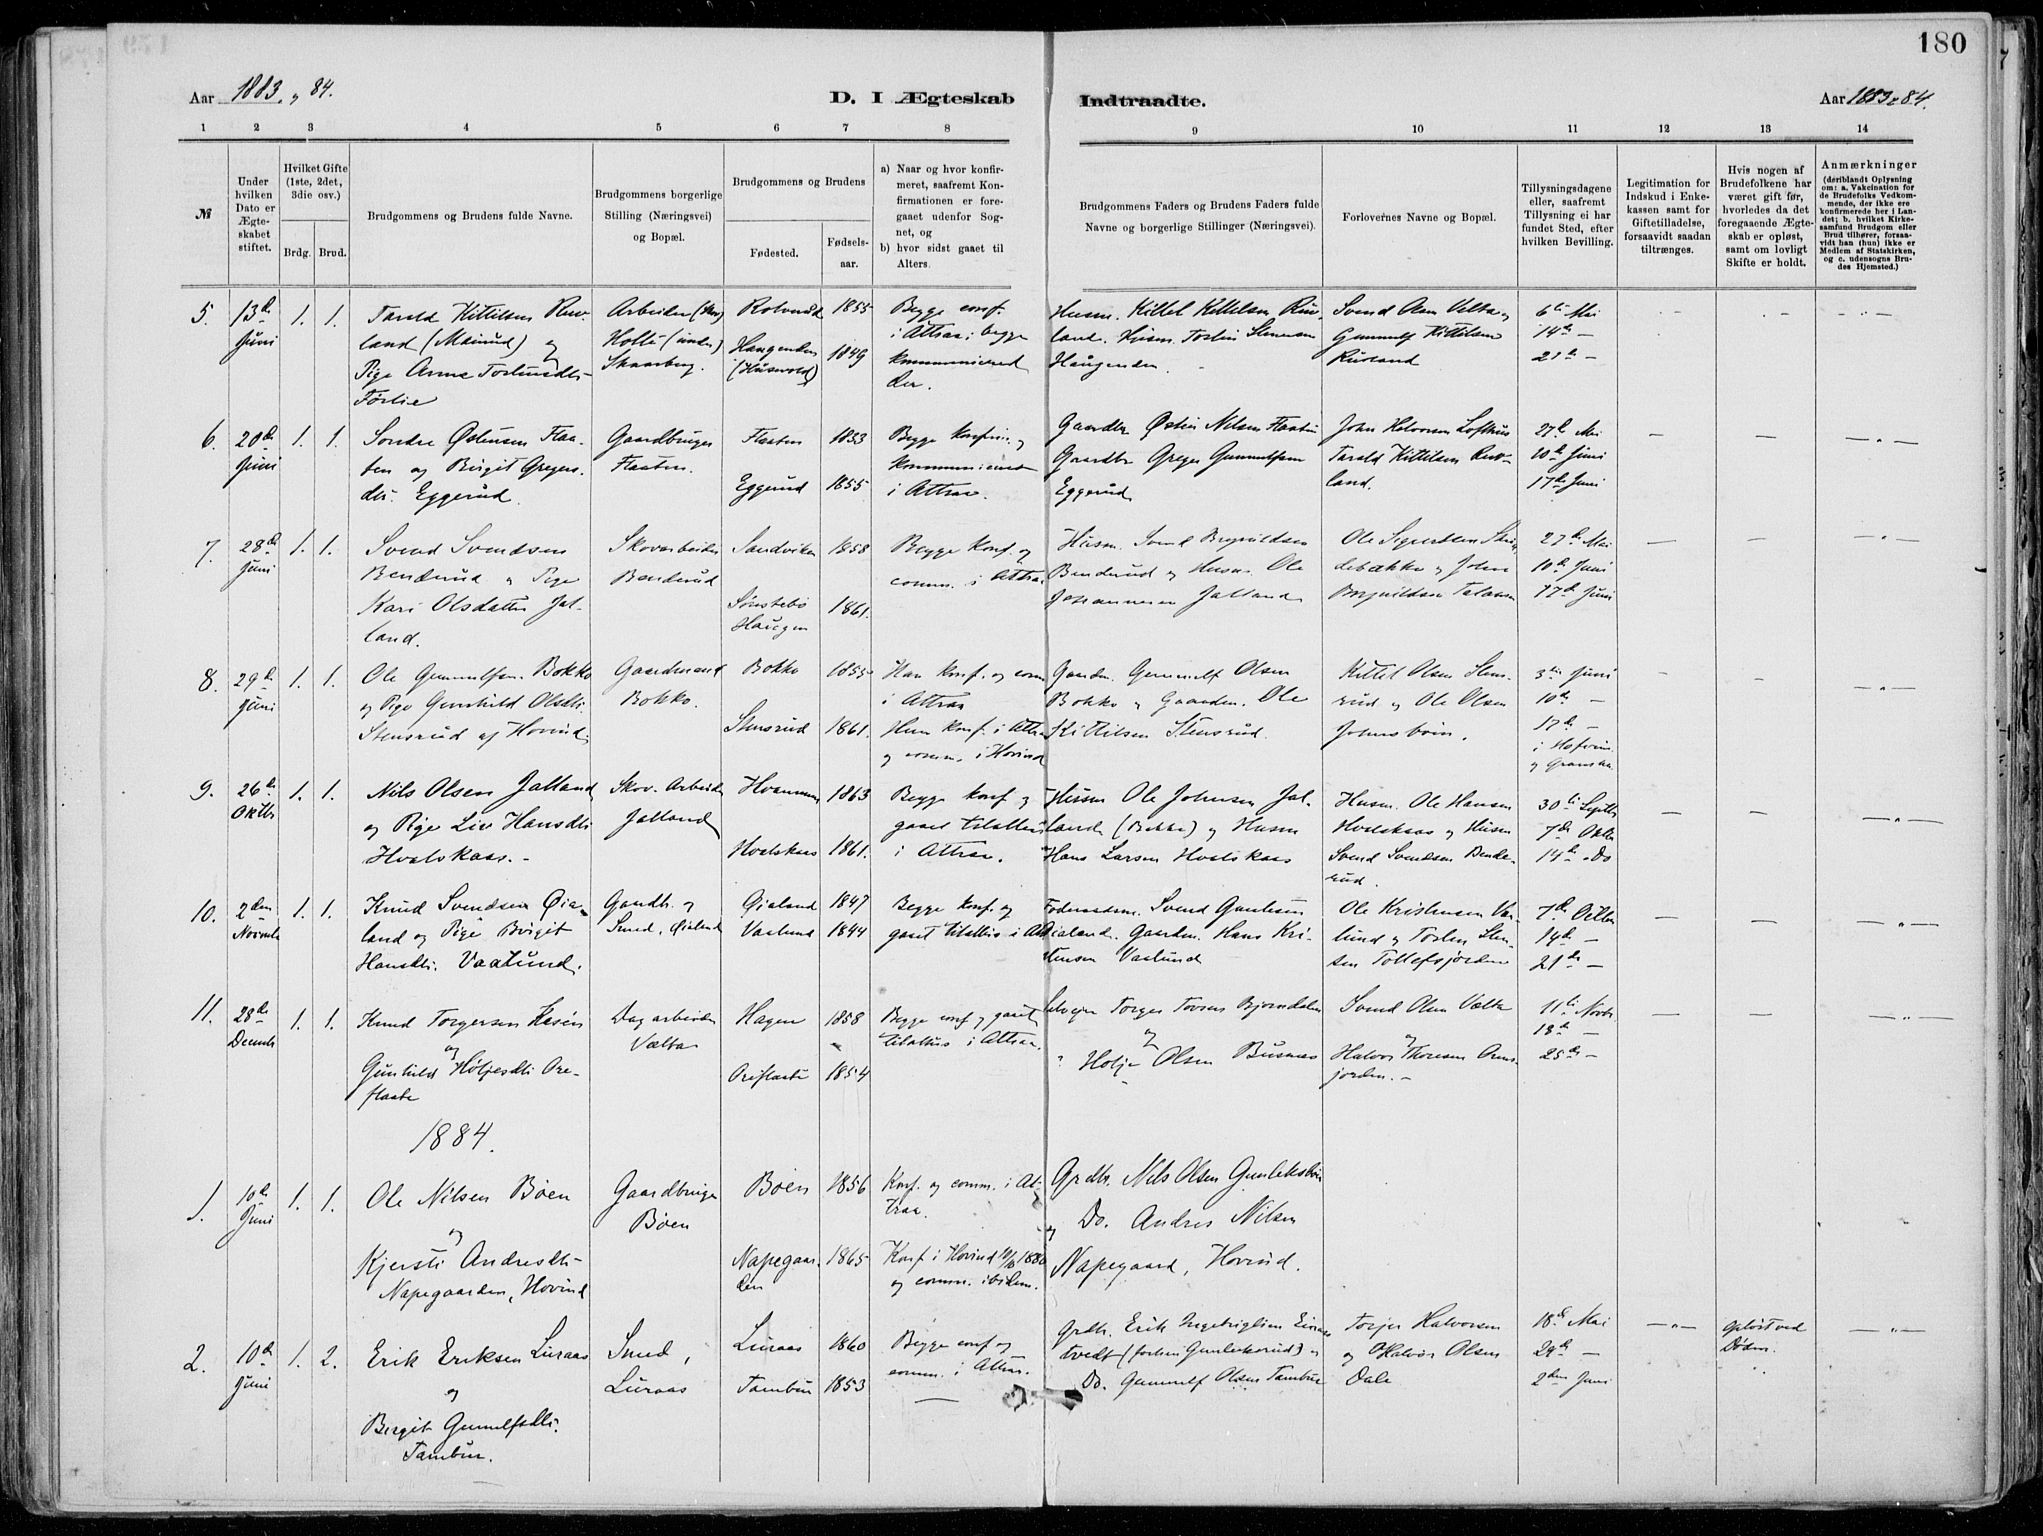 180
Aar 1883 „ 84.
D. I Ægteskab
Indtraadte.
Aar 1883 „ 84.
1 2 3 4 5 6 7 8
9 10 11 12 13 14
№
Under hvilken Dato er Ægteskabet stiftet.
Hvilket Gifte (1ste, 2det, 3die osv.)
Brdg. Brud.
Brudgommens og Brudens fulde Navne.
Brudgommens borgerlige Stilling (Næringsvei) og Bopæl.
Brudgommens og Brudens
Fødested.
Fødselsaar.
a) Naar og hvor konfirmeret, saafremt Konfirmationen er foregaaet udenfor Sognet, og
b) hvor sidst gaaet til Alters.
Brudgommens Faders og Brudens Faders fulde Navne og borgerlige Stillinger (Næringsvei).
Forlovernes Navne og Bopæl.
Tillysningsdagene eller, saafremt Tillysning ei har fundet Sted, efter hvilken Bevilling.
Legitimation for Indskud i Enkekassen samt for Giftetilladelse, forsaavidt saadan tiltrænges.
Hvis nogen af Brudefolkene har været gift før, hvorledes da det foregaaende Ægteskab er opløst, samt om lovligt Skifte er holdt.
Anmærkninger
(deriblandt Oplysning om: a. Vakcination for de Brudefolks Vedkommende, der ikke ere konfirmerede her i Landet; b. hvilket Kirkesamfund Brudgom eller Brud tilhører, forsaavidt han (hun) ikke er Medlem af Statskirken, og c. udensogns Brudes Hjemsted.)
5. 13de Juni 1. 1.
Tarald Kittilsen Ruuland (Mairud) og
Pige Anne
Arbeider
Skaarberg.
1855
1849
Begge conf. i Attraa; begge
Husm. Kittel Kittelsen
Haugenden.
Svend Olsen Velta og
Gunnulf Kittilsen
Ruuland
6te Mai
14de —
21de —
6. 20de Juni 1. 1.
Sondre Østensen Flaaten og Birgit Gregersdtr. Eggerud.
Gaardbruger
Flaaten.
Flaaten 1853
Eggerud 1855
Begge konfirm. og
i Attraa.
Gaardbr. Østen Nilsen Flaaten
Gaardbr. Greger Gunnulfsen
Eggerud
John Halvorsen Lofthus
Tarald Kittilsen Ruuland.
27de Mai
10de Juni
17de Juni
7. 28de Juni 1. 1.
Svend Svendsen
Benderud og Pige
Kari Olsdatter Jalland.
Skovarbeider
Benderud
Sandviken 1858
Sønstebø
Haugen 1861.
Begge Konf. og
comm. i Attraa
Husm. Svend Brynildsen
Benderud og Husm. Ole
Johannesen Jalland
Ole
27de Mai
10de Juni
17de Juni
8. 29de Juni 1. 1.
Ole Gunnulfsen Bokko
og Pige Gunhild Olsdtr.
Stensrud af Hovind.
Gaardmand
Bokko.
Bokko 1855
Stensrud 1861.
Han konf. og comm
i Attraa
Hun konf. i Attraa
og comm. i Hovind
Gaardm. Gunnulf Olsen
Bokko og Gaardm. Ole
Kittilsen Stensrud.
Kittel Olsen Stensrud og Ole Olsen
3die Juni
10de —
17de —
9. 26de Oktbr 1. 1.
Nils Olsen Jalland
og Pige Live Hansdtr
Hvalskaas. -
Skov. Arbeider
Jalland
1863
Hvalskaas 1861.
Begge konf. og
gaaet tilalters
i Attraa.
Husm Ole Johnsen Jalland (Bekke) og Husm
Hans Larsen Hvalskaas
Husm. Ole Hansen
Hvalskaas og Husm
Svend Svendsen Benderud.
30te Septbr
7de Oktbr
14de Do
10. 2den Novemb 1. 1.
Knud Svendsen Øialand og Pige Birgit
Hansdtr. Vaalund.
Gaardb. og
Smed, Øialand
Øialand 1847
Vaalund 1844
Begge konf. og
gaaet tilalters i Att
Føderaadsm. Svend
Øialand. Gaardm. Hans Kristensen Vaalund
Ole Kristensen Vaalund og Torsten
7de Octbr
14de —
21de —
11. 28de Decemb 1. 1.
Knud Torgersen
og
Gunhild Høljesdtr Oreflaate
Dagarbeider
Vælta
Hagen 1858
Oreflaate 1854
Begge conf og gaaet
tilalters i Attraa.
Selveier Torger
og
Holje Olsen Busnes
Svend Olsen Vælta
og
Halvor Thoresen
11te Novbr.
18de —
25de —
1884.
1. 10de Juni 1. 1.
Ole Nilsen Bøen
og
Kjersti Andresdtr
Napegaarden, Hovind
Gaardbruger
Bøen
Bøen 1856
Napegaarden 1865
Konf. og comm. i Attraa.
Konf. i Hovind 1880
og comm. ibidem.
Grdbr. Nils Olsen Gunleksbøen
og
Do. Andres Nilsen
Napegaard, Hovind.
2. 10de Juni 1. 2.
Erik Eriksen Luraas
og
Birgit Gunnulfsdtr.
Tambur.
Smed,
Luraas
Luraas 1860
Tambur 1853
Begge conf og
comm. i Attraa.
Grdbr. Erik
Do. Gunnulf Olsen Tambur
Torjer Halvorsen
og Halvor Olsen
Dale
18de Mai
24de —
2den Juni
opløst ved
Døden.